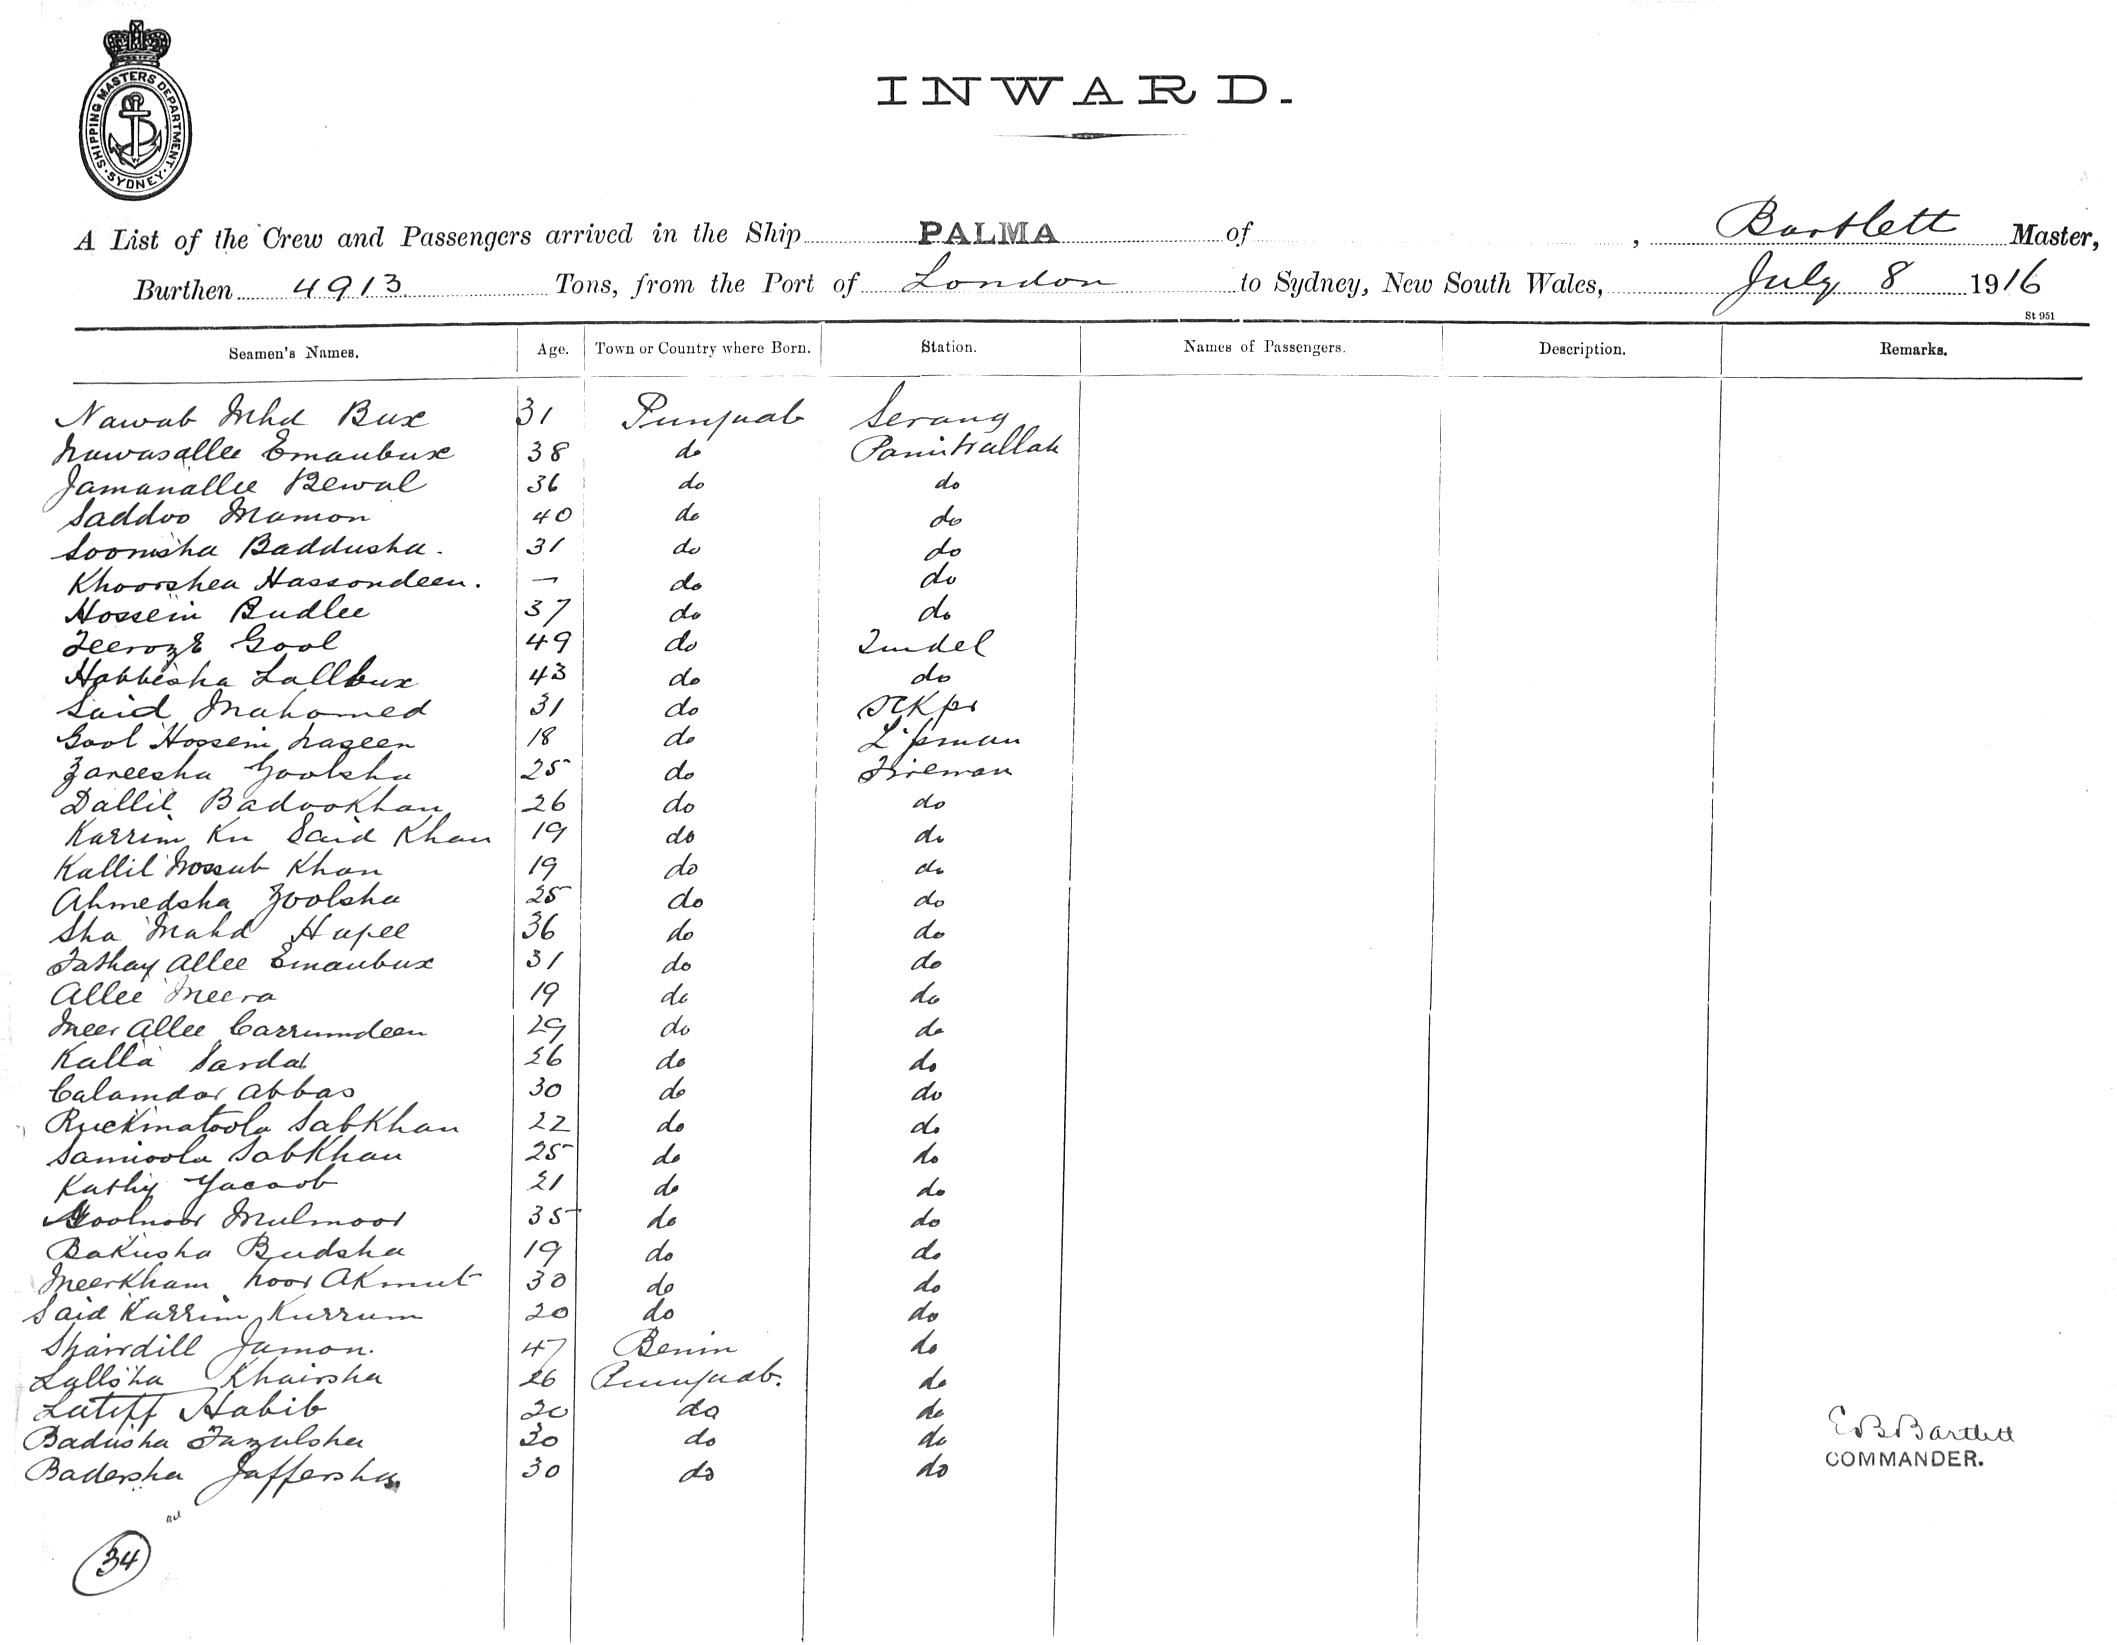 SHIPPING MASTERS DEPARTMENT. SYDNEY.
INWARD.
A List of the Crew and Passengers arrived in the Ship PALMA of , Bartlett Master,
Burthen 4913 Tons, from the Port of London to Sydney, New South Wales, July 8 1916
St 951
Seamen's Names. Age. Town or Country where Born. Station. Names of Passengers. Description. Remarks.
Nawab Mhd Bux 31 Punjaub Serang
Nawasallee Emaubux 38 do
Jamanallee Bewal 36 do do
Saddoo Mamon 40 do do
Soomsha Baddusha. 31 do do
Khoorshea Hassondeen. — do do
Hossein Budlee 37 do do
Feeroze Gool 49 do Tindel
Habbisha Lallbux 43 do do
Said Mahomed 31 do
Gool Hossein Naseen 18 do L'pman
Zareesha Goolsha 25 do Fireman
Dallil Badookhan 26 do do
Karrim Ku Said Khan 19 do do
Kallil Nossub Khan 19 do do
Ahmedsha Zoolsha 25 do do
Sha Mahd Hupee 36 do do
Fathay Allee Emaubux 31 do do
Allee Meera 19 do do
Meer Allee Carrumdeen 29 do do
Kalla Sardar 26 do do
Calamdar Abbas 30 do do
Ruckmatoola Sabkhan 22 do do
Samioola Sabkhan 25 do do
Kathiy Yacoob 21 do do
Goolnoor Mulmoor 35 do do
Bakusha Budsha 19 do do
Meerkham Noor Akmut 30 do do
Said Karrim Kurrum 20 do do
Shairdill Jamon. 47 Benin do
Lallsha Khairsha 26 Punjaub. do
Lutiff Habib 20 do do
Badusha Fazulsha 30 do do
Badersha Jaffersha 30 do do
E B Bartlett
COMMANDER.
34